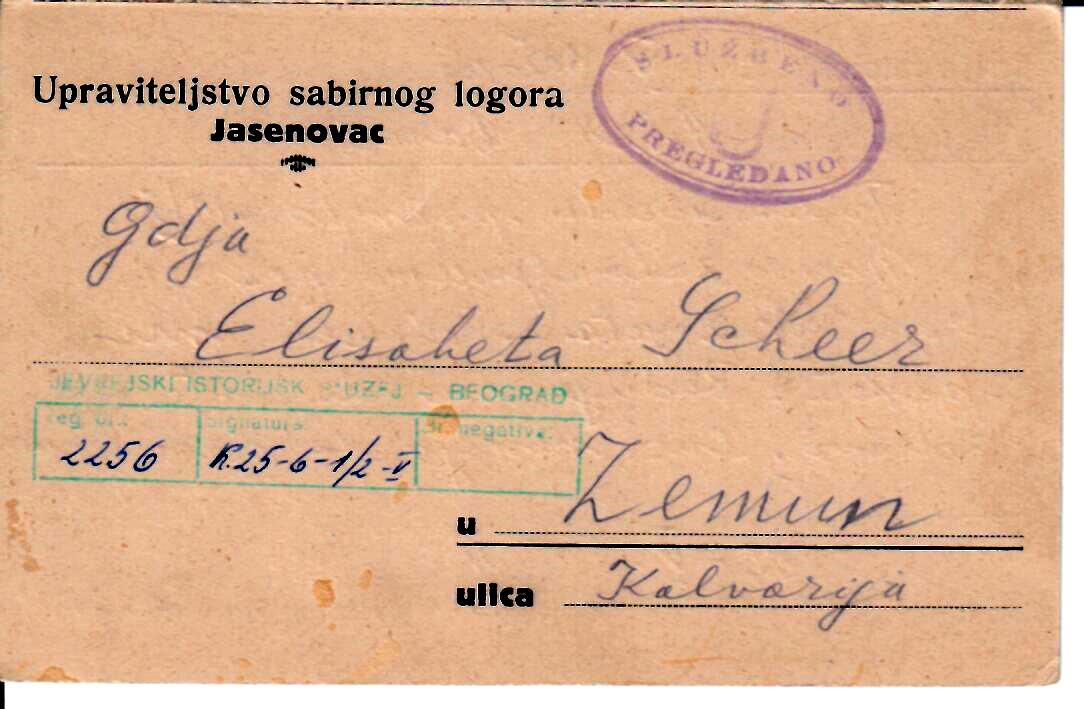 Upraviteljstvo sabirnog logora
Jasenovac
SLUŽBENO
U
PREGLEDANO
Gdja
Elisabeta Scheer
JEVREJSKI ISTORIJSK MUZEJ – BEOGRAD
reg. br.: Signatura: Br. negativa:
2256 K.25-6-1/2-V
u Zemun
ulica Kalvarija